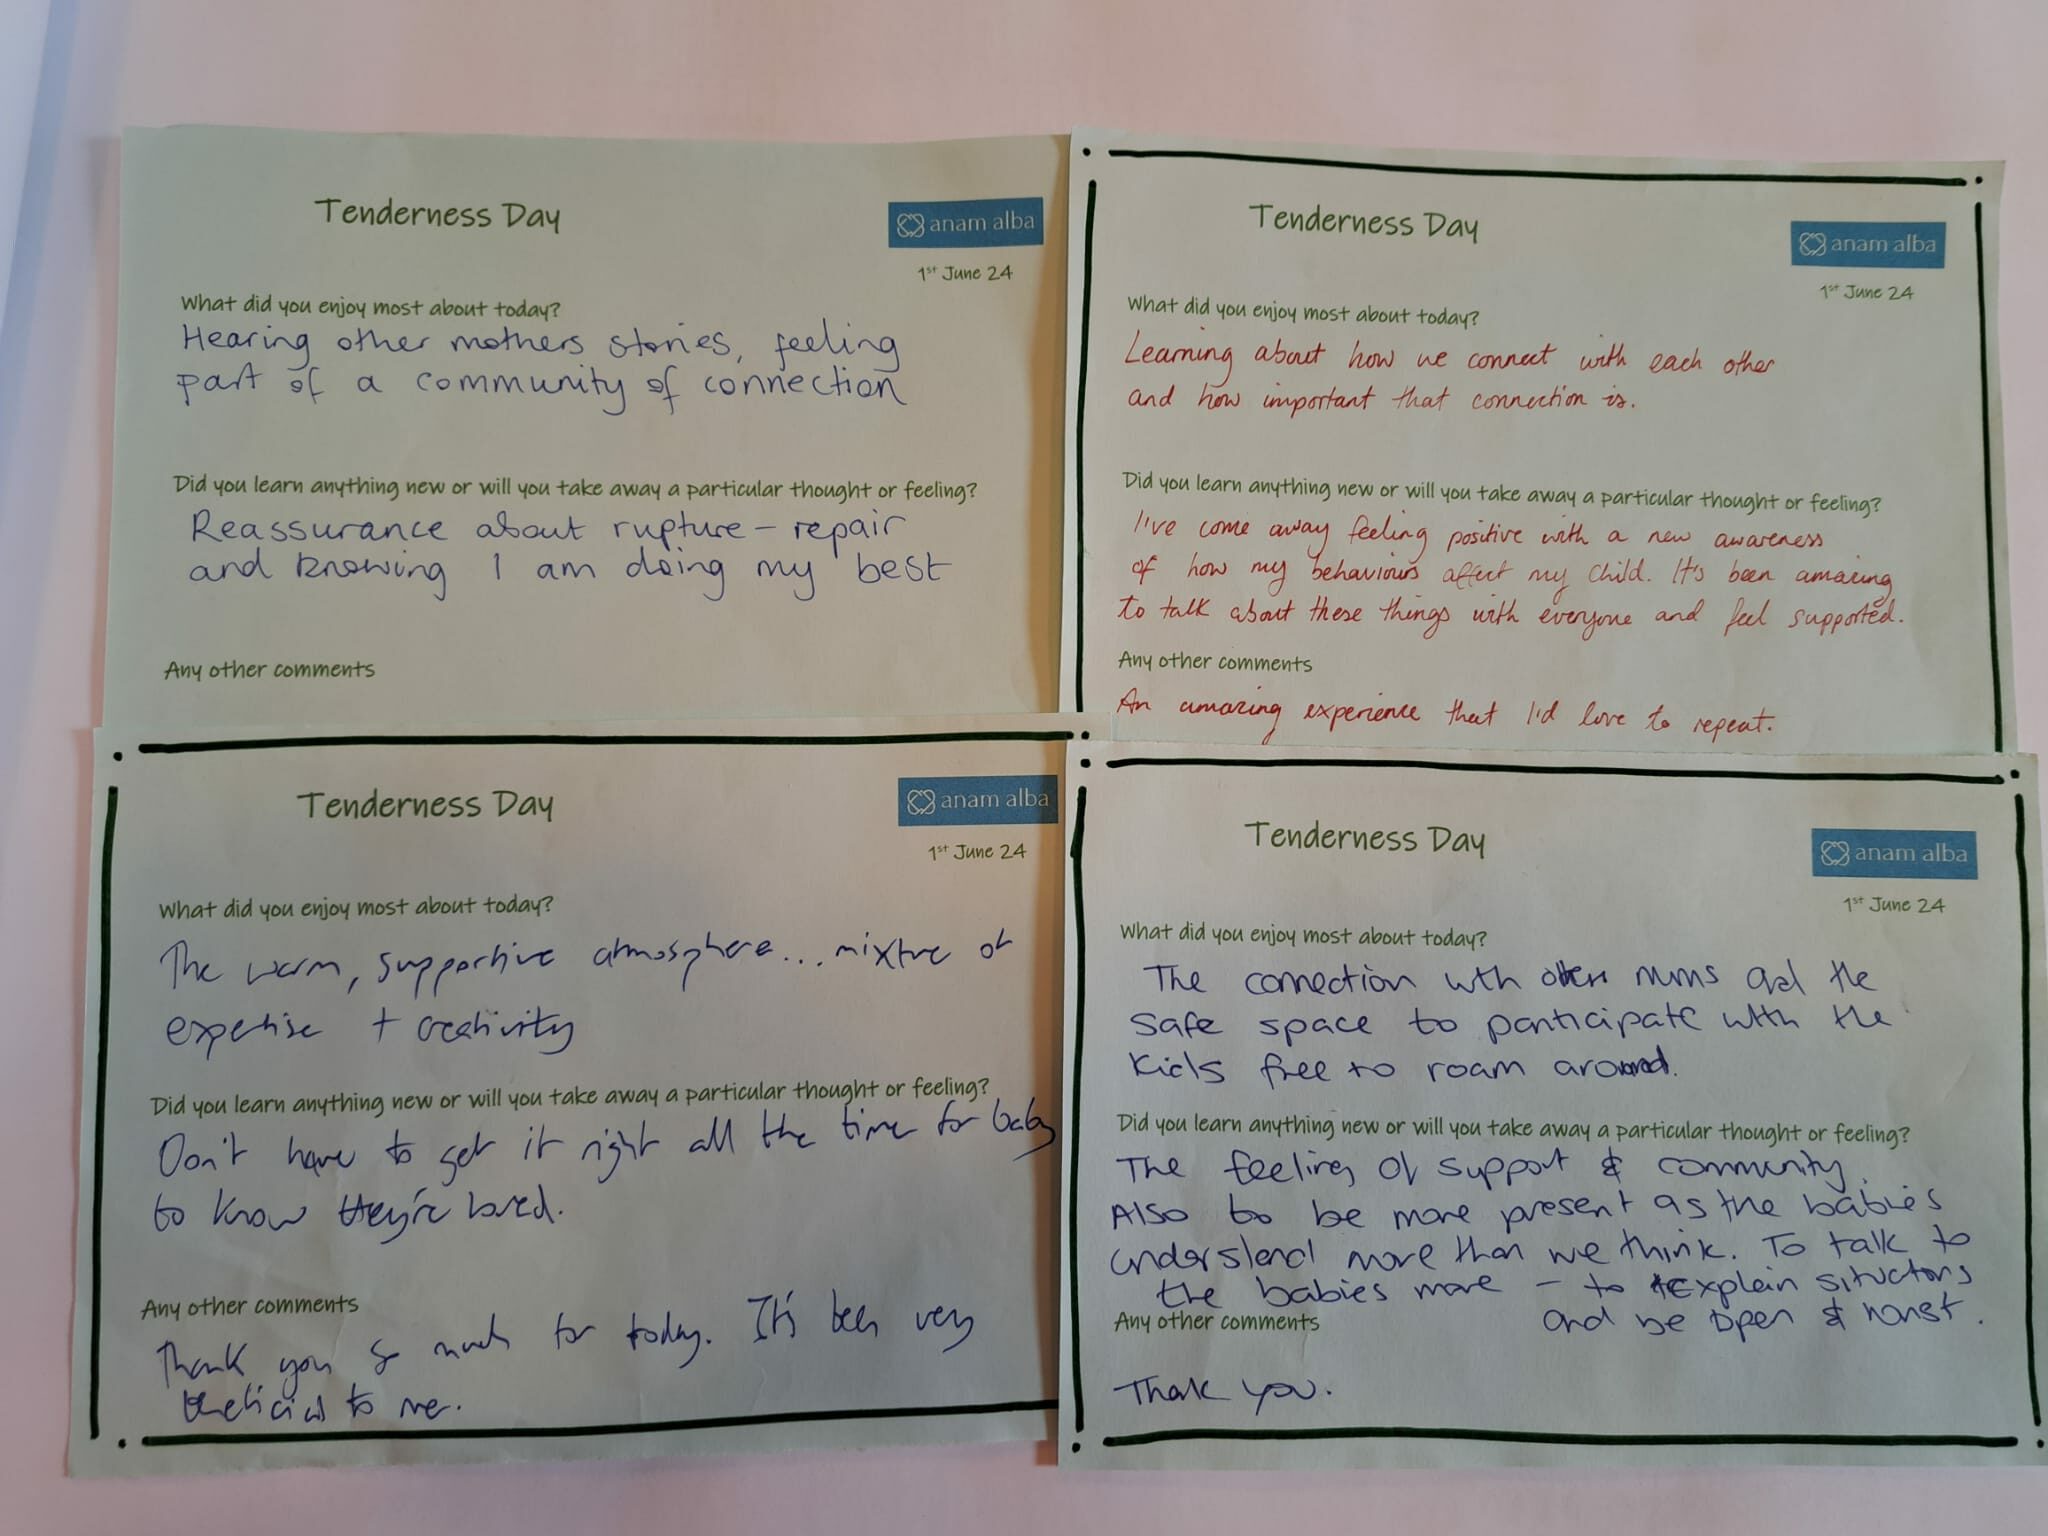 Tenderness Day
anam alba
1st June 24
What did you enjoy most about today?
Hearing other mothers stories, feeling
part of a community of connection
Did you learn anything new or will you take away a particular thought or feeling?
Reassurance about rupture – repair
and knowing I am doing my best
Any other comments
Tenderness Day
anam alba
1st June 24
What did you enjoy most about today?
Learning about how we connect with each other
and how important that connection is.
Did you learn anything new or will you take away a particular thought or feeling?
I've come away feeling positive with a new awareness
of how my behaviours affect my child. It's been amazing
to talk about these things with everyone and feel supported.
Any other comments
An amazing experience that I'd love to repeat.
Tenderness Day
anam alba
1st June 24
What did you enjoy most about today?
The warm, supportive atmosphere... mixture of
expertise + creativity
Did you learn anything new or will you take away a particular thought or feeling?
Don't have to get it right all the time for baby
to know they're loved.
Any other comments
Thank you so much for today. It's been very
beneficial to me.
Tenderness Day
anam alba
1st June 24
What did you enjoy most about today?
The connection with other mums and the
safe space to participate with the
kids free to roam around.
Did you learn anything new or will you take away a particular thought or feeling?
The feeling of support & community.
Also to be more present as the babies
understand more than we think. To talk to
the babies more – to explain situations
and be open & honest.
Any other comments
Thank you.